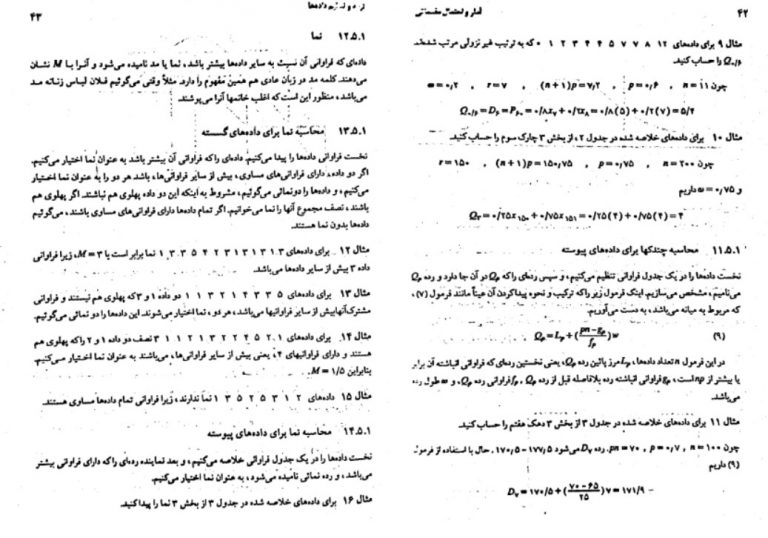 ۴۲
آمار و احتمال مقدماتی
مثال ۹ برای داده‌های ۱۲ ۸ ۷ ۷ ۵ ۴ ۴ ۳ ۲ ۱ ۰ که به ترتیب غیر نزولی مرتب شده‌اند
Q₀/₆ را حساب کنید.
چون n = ۱۱ , p = ۰/۶ , (n+۱)p = ۷/۲ , r = ۷ , ω = ۰/۲
Q₀/₆ = D₆ = P₆₀ = ۰/۸x₇ + ۰/۲x₈ = ۰/۸(۵) + ۰/۲(۷) = ۵/۴
مثال ۱۰ برای داده‌های خلاصه شده در جدول ۲، از بخش ۳ چارک سوم را حساب کنید.
چون n = ۲۰۰ , p = ۰/۷۵ , (n+۱)p = ۱۵۰/۷۵ , r = ۱۵۰
و ω = ۰/۷۵ داریم
Q₃ = ۰/۲۵x₁₅₀ + ۰/۷۵x₁₅₁ = ۰/۲۵(۴) + ۰/۷۵(۴) = ۴
۱۱.۵.۱ محاسبه چندکها برای داده‌های پیوسته
نخست داده‌ها را در یک جدول فراوانی تنظیم می‌کنیم، و سپس رده‌ای را که Qₚ در آن جا دارد و رده Qₚ
می‌نامیم، مشخص می‌سازیم. اینک فرمول زیر را که ترکیب و نحوه پیدا کردن آن عیناً مانند فرمول (۷)،
که مربوط به میانه می‌باشد، به دست می‌آوریم.
(۹) Qₚ = Lₚ + (pn − gₚ / fₚ)w
در این فرمول n تعداد داده‌ها، Lₚ مرز پائین رده Qₚ، یعنی نخستین رده‌ای که فراوانی انباشته آن برابر
یا بیشتر از np است، gₚ فراوانی انباشته رده بلافاصله قبل از رده Qₚ، fₚ فراوانی رده Qₚ، و w طول رده
می‌باشد.
مثال ۱۱ برای داده‌های خلاصه شده در جدول ۳ از بخش ۳ دهک هفتم را حساب کنید.
چون n = ۱۰۰ , p = ۰/۷ , pn = ۷۰، رده D₇ می‌شود ۱۷۷/۵ − ۱۷۰/۵. حال با استفاده از فرمول
(۹) داریم
D₇ = ۱۷۰/۵ + (۷۰ − ۶۵ / ۲۵)۷ = ۱۷۱/۹
۴۳
۱۲.۵.۱ نما
داده‌ای که فراوانی آن نسبت به سایر داده‌ها بیشتر باشد، نما یا مد نامیده می‌شود و آنرا با M نشان
می‌دهند. کلمه مد در زبان عادی هم همین مفهوم را دارد. مثلاً وقتی می‌گوئیم فلان لباس زنانه مد
می‌باشد، منظور این است که اغلب خانمها آنرا می‌پوشند.
۱۳.۵.۱ محاسبه نما برای داده‌های گسسته
نخست فراوانی داده‌ها را پیدا می‌کنیم. داده‌ای را که فراوانی آن بیشتر باشد به عنوان نما اختیار می‌کنیم.
اگر دو داده، دارای فراوانی‌های مساوی، بیش از سایر فراوانی‌ها، باشد هر دو را به عنوان نما اختیار
می‌کنیم، و داده‌ها را دونمائی می‌گوئیم، مشروط به اینکه این دو داده پهلوی هم نباشند. اگر پهلوی هم
باشند، نصف مجموع آنها را نما می‌خوانیم. اگر تمام داده‌ها دارای فراوانی‌های مساوی باشند، می‌گوئیم
داده‌ها بدون نما هستند.
مثال ۱۲ برای داده‌های ۳ ۱ ۳ ۱ ۳ ۲ ۴ ۵ ۳ ۳ ۱ نما برابر است با M = ۳، زیرا فراوانی
داده ۳ بیش از سایر داده‌ها می‌باشد.
مثال ۱۳ برای داده‌های ۵ ۴ ۳ ۳ ۱ ۲ ۳ ۱ ۱ دو داده ۱ و ۳ که پهلوی هم نیستند و فراوانی
مشترک آنها بیش از سایر فراوانیها می‌باشد، هر دو، نما اختیار می‌شوند. این داده‌ها را دو نمائی می‌گوئیم.
مثال ۱۴ برای داده‌های ۱ ۲ ۵ ۴ ۲ ۲ ۳ ۲ ۱ ۱ ۳ نصف دو داده ۱ و ۲ را که پهلوی هم
هستند و دارای فراوانیهای ۴، یعنی بیش از سایر فراوانی‌ها، می‌باشند به عنوان نما اختیار می‌کنیم.
بنابراین M = ۱/۵.
مثال ۱۵ داده‌های ۲ ۱ ۳ ۵ ۲ ۵ ۳ ۱ نما ندارند، زیرا فراوانی تمام داده‌ها مساوی هستند.
۱۴.۵.۱ محاسبه نما برای داده‌های پیوسته
نخست داده‌ها را در یک جدول فراوانی خلاصه می‌کنیم، و بعد نماینده رده‌ای را که دارای فراوانی بیشتر
می‌باشد، و رده نمائی نامیده می‌شود، به عنوان نما اختیار می‌کنیم.
مثال ۱۶ برای داده‌های خلاصه شده در جدول ۳ از بخش ۳ نما را پیدا کنید.